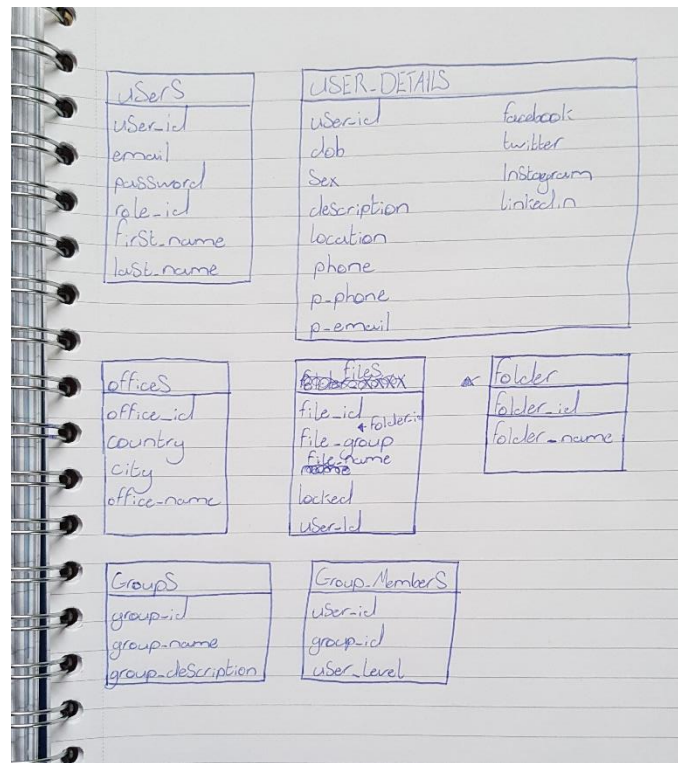 users
user_id
email
password
role_id
first_name
last_name
USER_DETAILS
user_id
dob
Sex
description
location
phone
p-phone
p-email
facebook
twitter
Instagram
linkedin
offices
office_id
country
city
office-name
files
file_id
+ folder_id
file-group
file-name
locked
user-id
folder
folder_id
folder_name
Groups
group-id
group-name
group-description
Group-Members
user-id
group-id
user_level